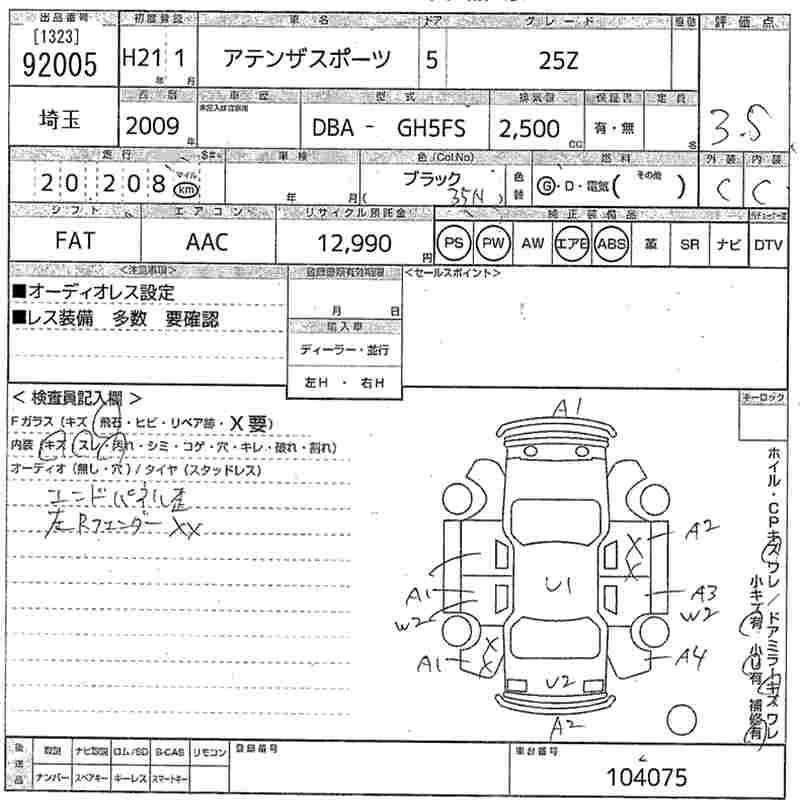 出品番号 初度登録 車名 ドア グレード 車歴 評価点
[1323]
92005 H21年 1月 アテンザスポーツ 5 25Z
西暦 車歴 型式 排気量 保証書 定員
埼玉 2009年 DBA - GH5FS 2,500cc 有・無 名 3.5
走行 車検 色(Col.No) 燃料 外装 内装
20,208 マイル km 年 月 ブラック (35N) 色替 G・D・電気( その他 ) C C
シフト エアコン リサイクル預託金 純正装備品
FAT AAC 12,990円 PS PW AW エアB ABS 革 SR ナビ DTV
<注意事項> 登録書類有効期限 <セールスポイント>
■オーディオレス設定
月 日
■レス装備 多数 要確認
輸入車
ディーラー・並行
左H ・ 右H
< 検査員記入欄 > キーロック
Fガラス(キズ 飛石・ヒビ・リペア跡・X要)
内装(キズ・スレ・汚れ・シミ・コゲ・穴・キレ・破れ・割れ)
オーディオ(無し・穴)/タイヤ(スタッドレス)
エンドパネル歪
左Rフェンダー XX
A1
A2
X
X
U1
A1
W2
A3
W2
X
X
A1
A4
U2
A2
ホイル・CPキズワレ/ドアミラーキズワレ
小キズ有 小U有 補修有
後送品 取説 ナビ取説 ロム/SD B-CAS リモコン 登録番号 車台番号
ナンバー スペアキー キーレス スマートキー
104075